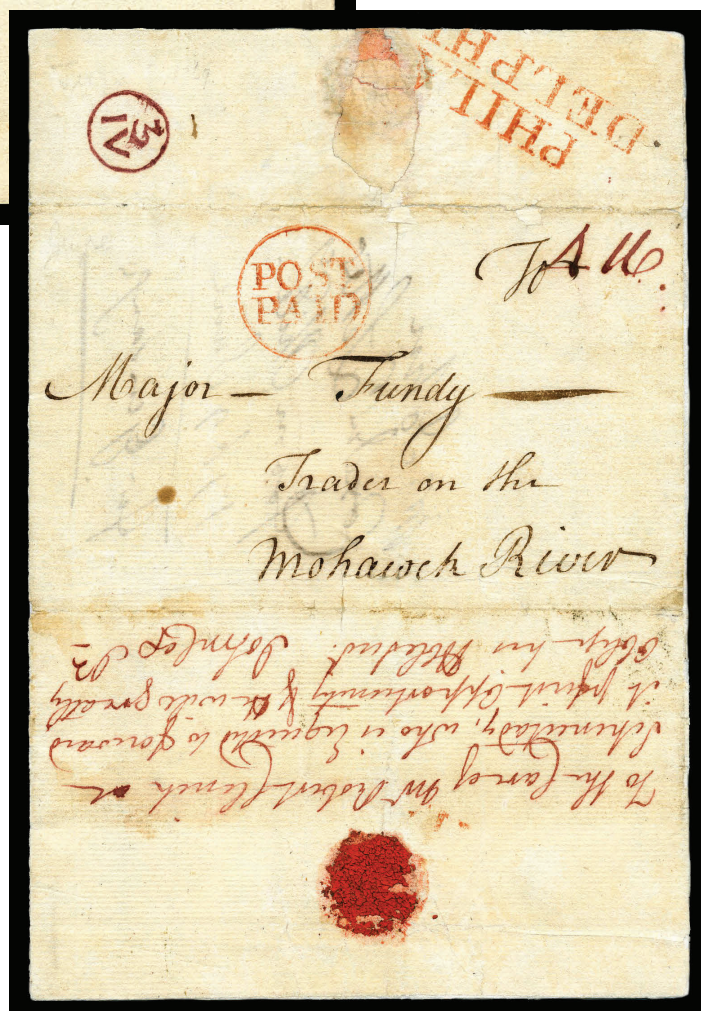 PHILA
DELPHI
3
IV
POST
PAID
To
Major — Fundy —
Trader on the
Mohawck River
To the Care of Mr Robert Clench at
Schenectady, who is requested to forward
it first opportunity & it will greatly
Oblige his Obedt.
John Cox Jr